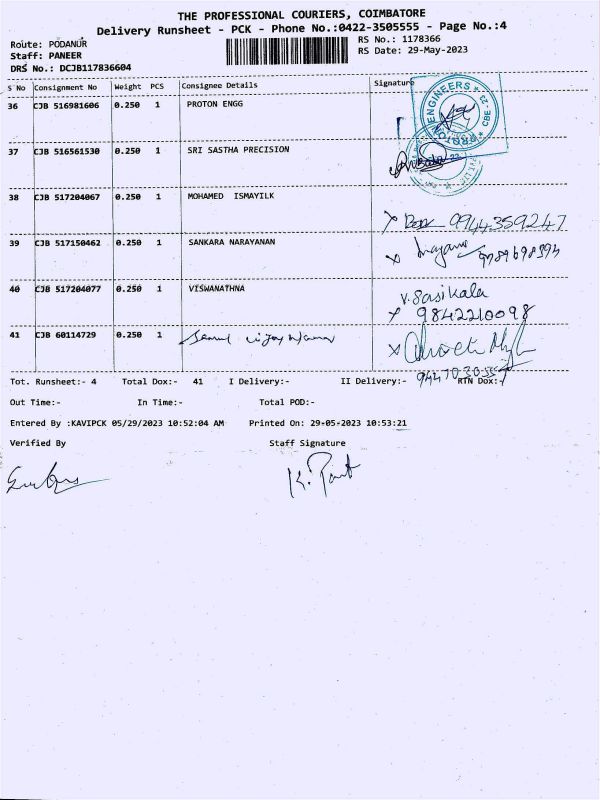 THE PROFESSIONAL COURIERS, COIMBATORE
Delivery Runsheet - PCK - Phone No.:0422-3505555 - Page No.:4
Route: PODANUR
RS No.: 1178366
Staff: PANEER
RS Date: 29-May-2023
DRS No.: DCJB117836604
S No Consignment No Weight PCS Consignee Details Signature
36 CJB 516981606 0.250 1 PROTON ENGG
ENGINEERS CBE-23
37 CJB 516561530 0.250 1 SRI SASTHA PRECISION
38 CJB 517204067 0.250 1 MOHAMED ISMAYILK
9944359247
39 CJB 517150462 0.250 1 SANKARA NARAYANAN
9789698394
40 CJB 517204077 0.250 1 VISWANATHNA V. Sasikala
9842210098
41 CJB 60114729 0.250 1
Tot. Runsheet:- 4 Total Dox:- 41 I Delivery:- II Delivery:- RTN Dox:-
Out Time:- In Time:- Total POD:-
Entered By :KAVIPCK 05/29/2023 10:52:04 AM Printed On: 29-05-2023 10:53:21
Verified By Staff Signature